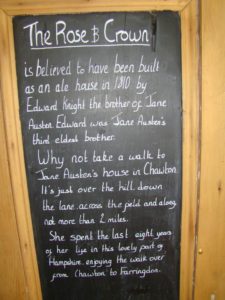 The Rose & Crown
is believed to have been built
as an ale house in 1810 by
Edward Knight the brother of Jane
Austen. Edward was Jane Austen's
third eldest brother.
Why not take a walk to
Jane Austen's house in Chawton.
It's just over the hill, down
the lane, across the field and along
not more than 2 miles.
She spent the last eight years
of her life in this lovely part of
Hampshire enjoying the walk over
from Chawton to Farringdon.